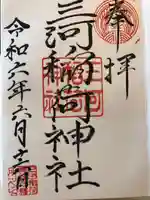 奉拝
三河稲荷神社
令和六年六月三日